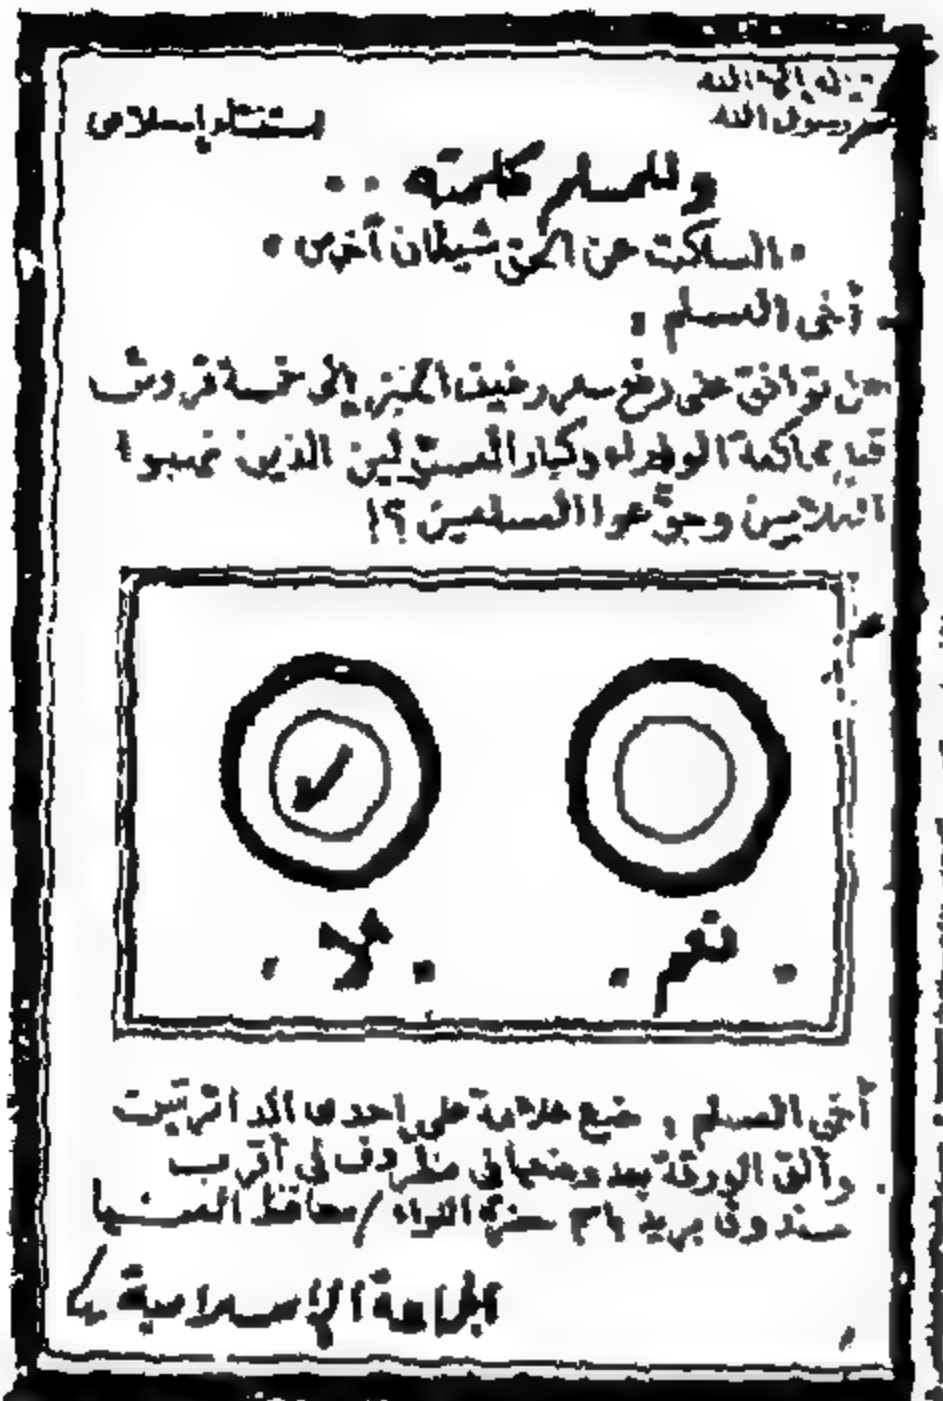 لا إله إلا الله
رسول الله
استفتاء إسلامى
وللمسلم كلمته ..
• الساكت عن الحق شيطان أخرس •
. أخى المسلم .
هل توافق على رفع سعر رغيف الخبز إلى خمسة قروش
قبل محاكمة الوزراء وكبار المسئولين الذين نهبوا
الملايين وجوّعوا المسلمين ؟!
. نعم .
. لا .
أخى المسلم . ضع علامة على احدى الدائرتين
وألق الورقة بعد وضعها فى مظروف فى أقرب
صندوق بريد باسم اللواء / محافظ المنيا
الجماعة الإسلامية